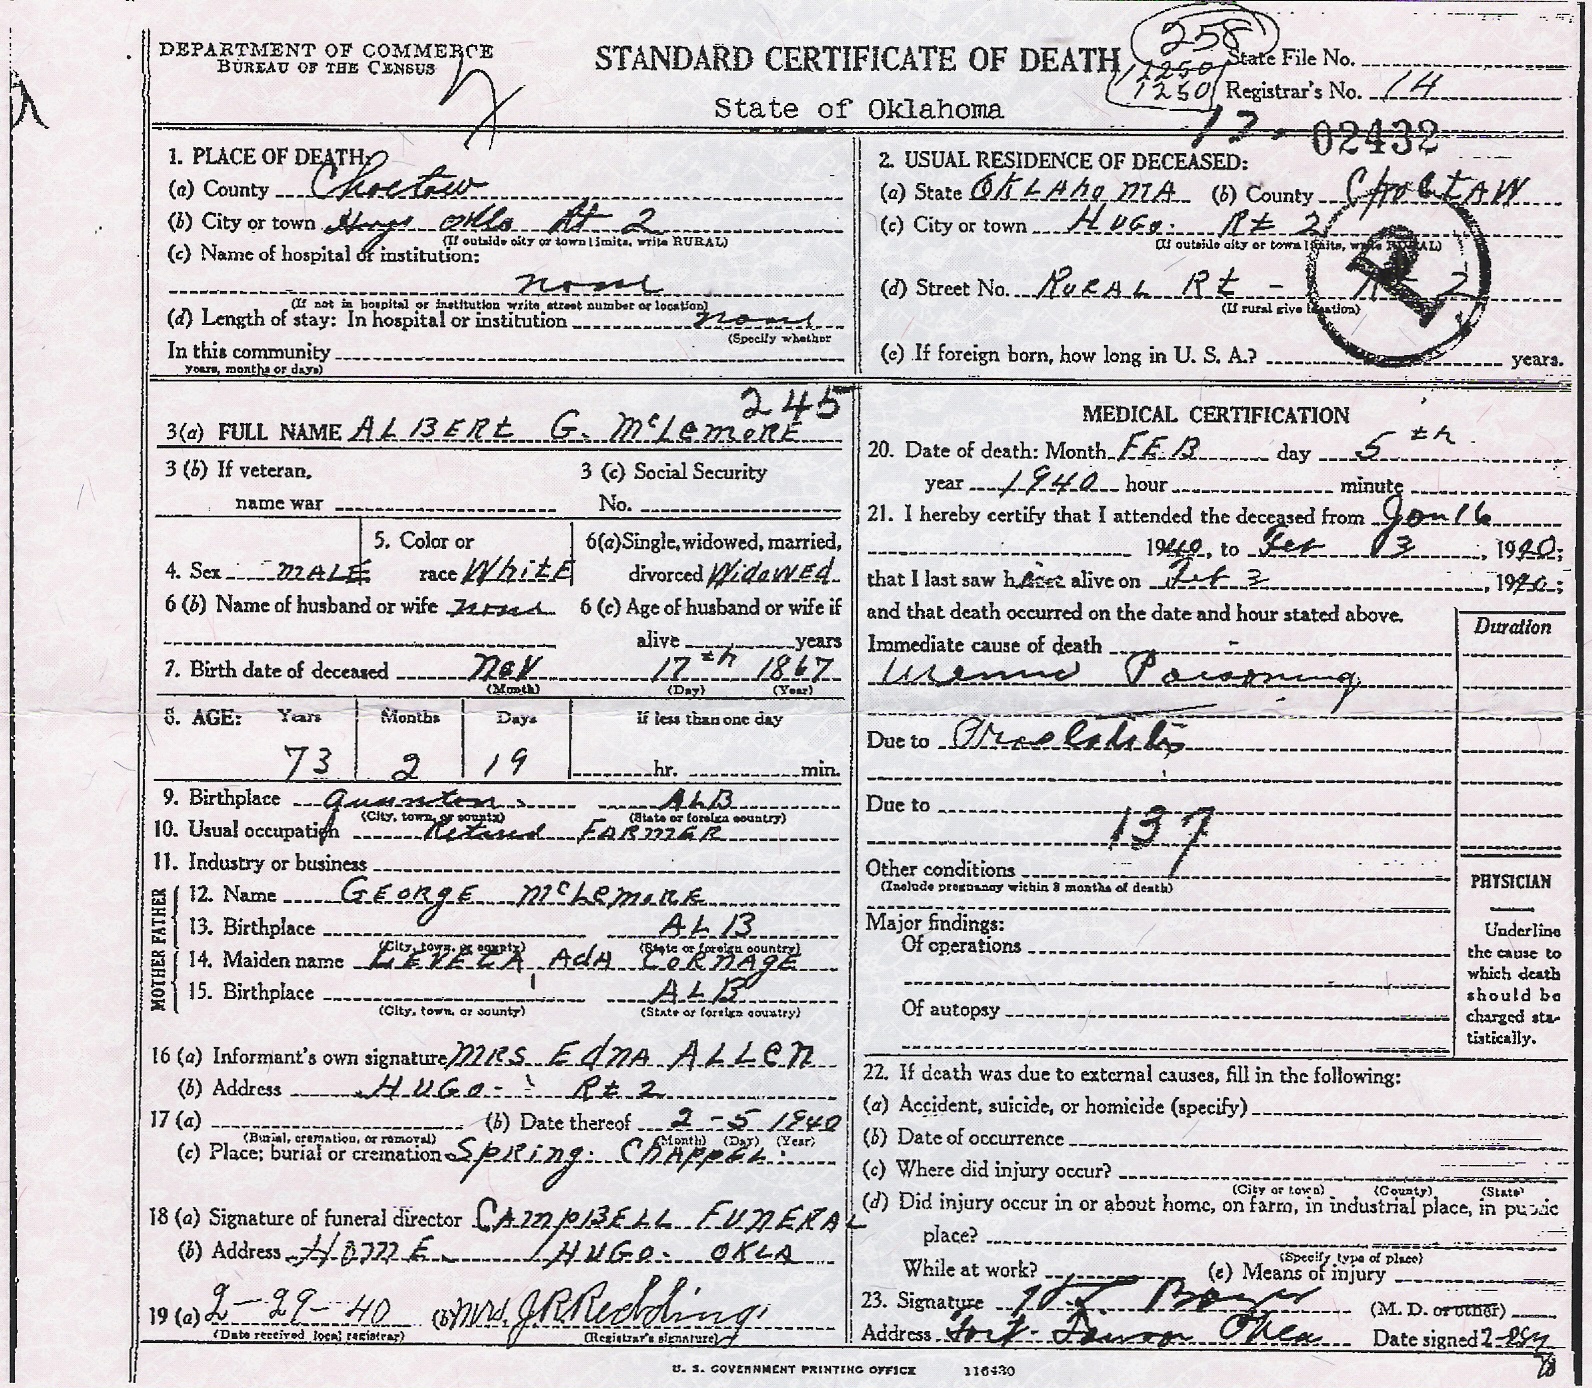 DEPARTMENT OF COMMERCE
BUREAU OF THE CENSUS
STANDARD CERTIFICATE OF DEATH
State of Oklahoma
258
12250
1250
State File No.
Registrar's No. 14
02432
1. PLACE OF DEATH:
(a) County Choctaw
(b) City or town Hugo Okla Rt 2
(If outside city or town limits, write RURAL)
(c) Name of hospital or institution:
none
(If not in hospital or institution write street number or location)
(d) Length of stay: In hospital or institution none
(Specify whether
In this community
years, months or days)
2. USUAL RESIDENCE OF DECEASED:
(a) State OKLAHOMA (b) County CHOCTAW
(c) City or town HUGO. Rt 2
(If outside city or town limits, write RURAL)
(d) Street No. RURAL Rt - 2
(If rural give location)
R
(e) If foreign born, how long in U. S. A.? years.
245
3(a) FULL NAME ALBERt G. McLEMORE
3 (b) If veteran,
name war
3 (c) Social Security
No.
4. Sex MALE
5. Color or
race WHitE
6(a) Single, widowed, married,
divorced WidowED
6 (b) Name of husband or wife none
6 (c) Age of husband or wife if
alive years
7. Birth date of deceased NOV 17th 1867
(Month) (Day) (Year)
8. AGE: Years Months Days If less than one day
73 2 19 hr. min.
9. Birthplace ALB
(City, town, or county) (State or foreign country)
10. Usual occupation Retired FARMER
11. Industry or business
FATHER
12. Name GEORGE McLEMORE
13. Birthplace ALB
(City, town, or county) (State or foreign country)
MOTHER
14. Maiden name ADA CORNAGE
15. Birthplace ALB
(City, town, or county) (State or foreign country)
16 (a) Informant's own signature MRS EDNA ALLEN
(b) Address HUGO- Rt 2
17 (a) (b) Date thereof 2 - 5 1940
(Burial, cremation, or removal) (Month) (Day) (Year)
(c) Place; burial or cremation SPRING. CHAPPEL.
18 (a) Signature of funeral director CAMPBELL FUNERAL
(b) Address HOME HUGO. OKLA
19 (a) 2-29-40 (b) Mrs. J R Redding
(Date received local registrar) (Registrar's signature)
MEDICAL CERTIFICATION
20. Date of death: Month FEB day 5th
year 1940 hour minute
21. I hereby certify that I attended the deceased from Jan 16
1940, to Feb 3, 1940;
that I last saw him alive on Feb 3, 1940;
and that death occurred on the date and hour stated above.
Duration
Immediate cause of death -
Uremic Poisoning
Due to Prostatitis
Due to
137
Other conditions
(Include pregnancy within 3 months of death)
Major findings:
Of operations
Of autopsy
PHYSICIAN
Underline
the cause to
which death
should be
charged sta-
tistically.
22. If death was due to external causes, fill in the following:
(a) Accident, suicide, or homicide (specify)
(b) Date of occurrence
(c) Where did injury occur?
(City or town) (County) (State)
(d) Did injury occur in or about home, on farm, in industrial place, in public
place?
(Specify type of place)
While at work? (e) Means of injury
23. Signature (M. D. or other)
Address Fort Towson Okla Date signed
U. S. GOVERNMENT PRINTING OFFICE 116430